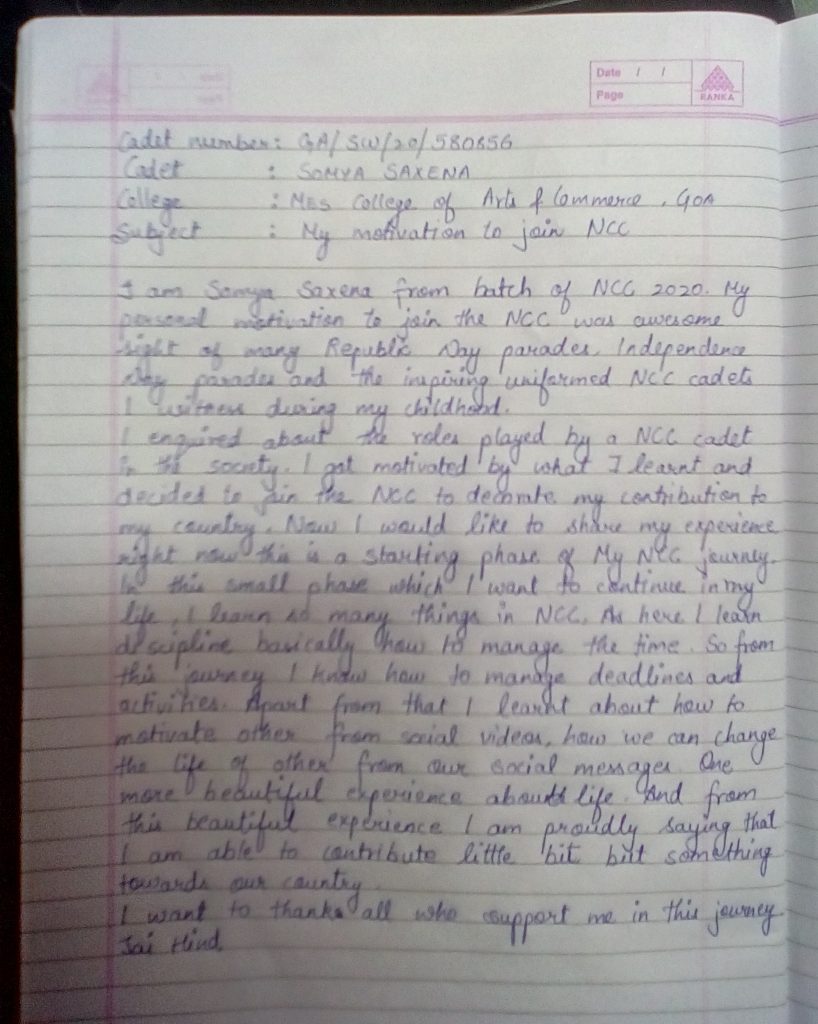 Date / /
Page
RANKA
Cadet number: GA/SW/20/580856
Cadet : SOMYA SAXENA
College : MES College of Arts & Commerce, GOA
Subject : My motivation to join NCC
I am Somya Saxena from batch of NCC 2020. My
personal motivation to join the NCC was awesome
sight of many Republic Day parades, Independence
Day parades and the inspiring uniformed NCC cadets
I witness during my childhood.
I enquired about the roles played by a NCC cadet
in the society. I got motivated by what I learnt and
decided to join the NCC to decorate my contribution to
my country. Now I would like to share my experience
right now this is a starting phase of My NCC journey.
In this small phase which I want to continue in my
life, I learn so many things in NCC. As here I learn
discipline basically how to manage the time. So from
this journey I know how to manage deadlines and
activities. Apart from that I learnt about how to
motivate other from social videos, how we can change
the life of other from our social messages. One
more beautiful experience about life. And from
this beautiful experience I am proudly saying that
I am able to contribute little bit but something
towards our country.
I want to thanks all who support me in this journey
Jai Hind.